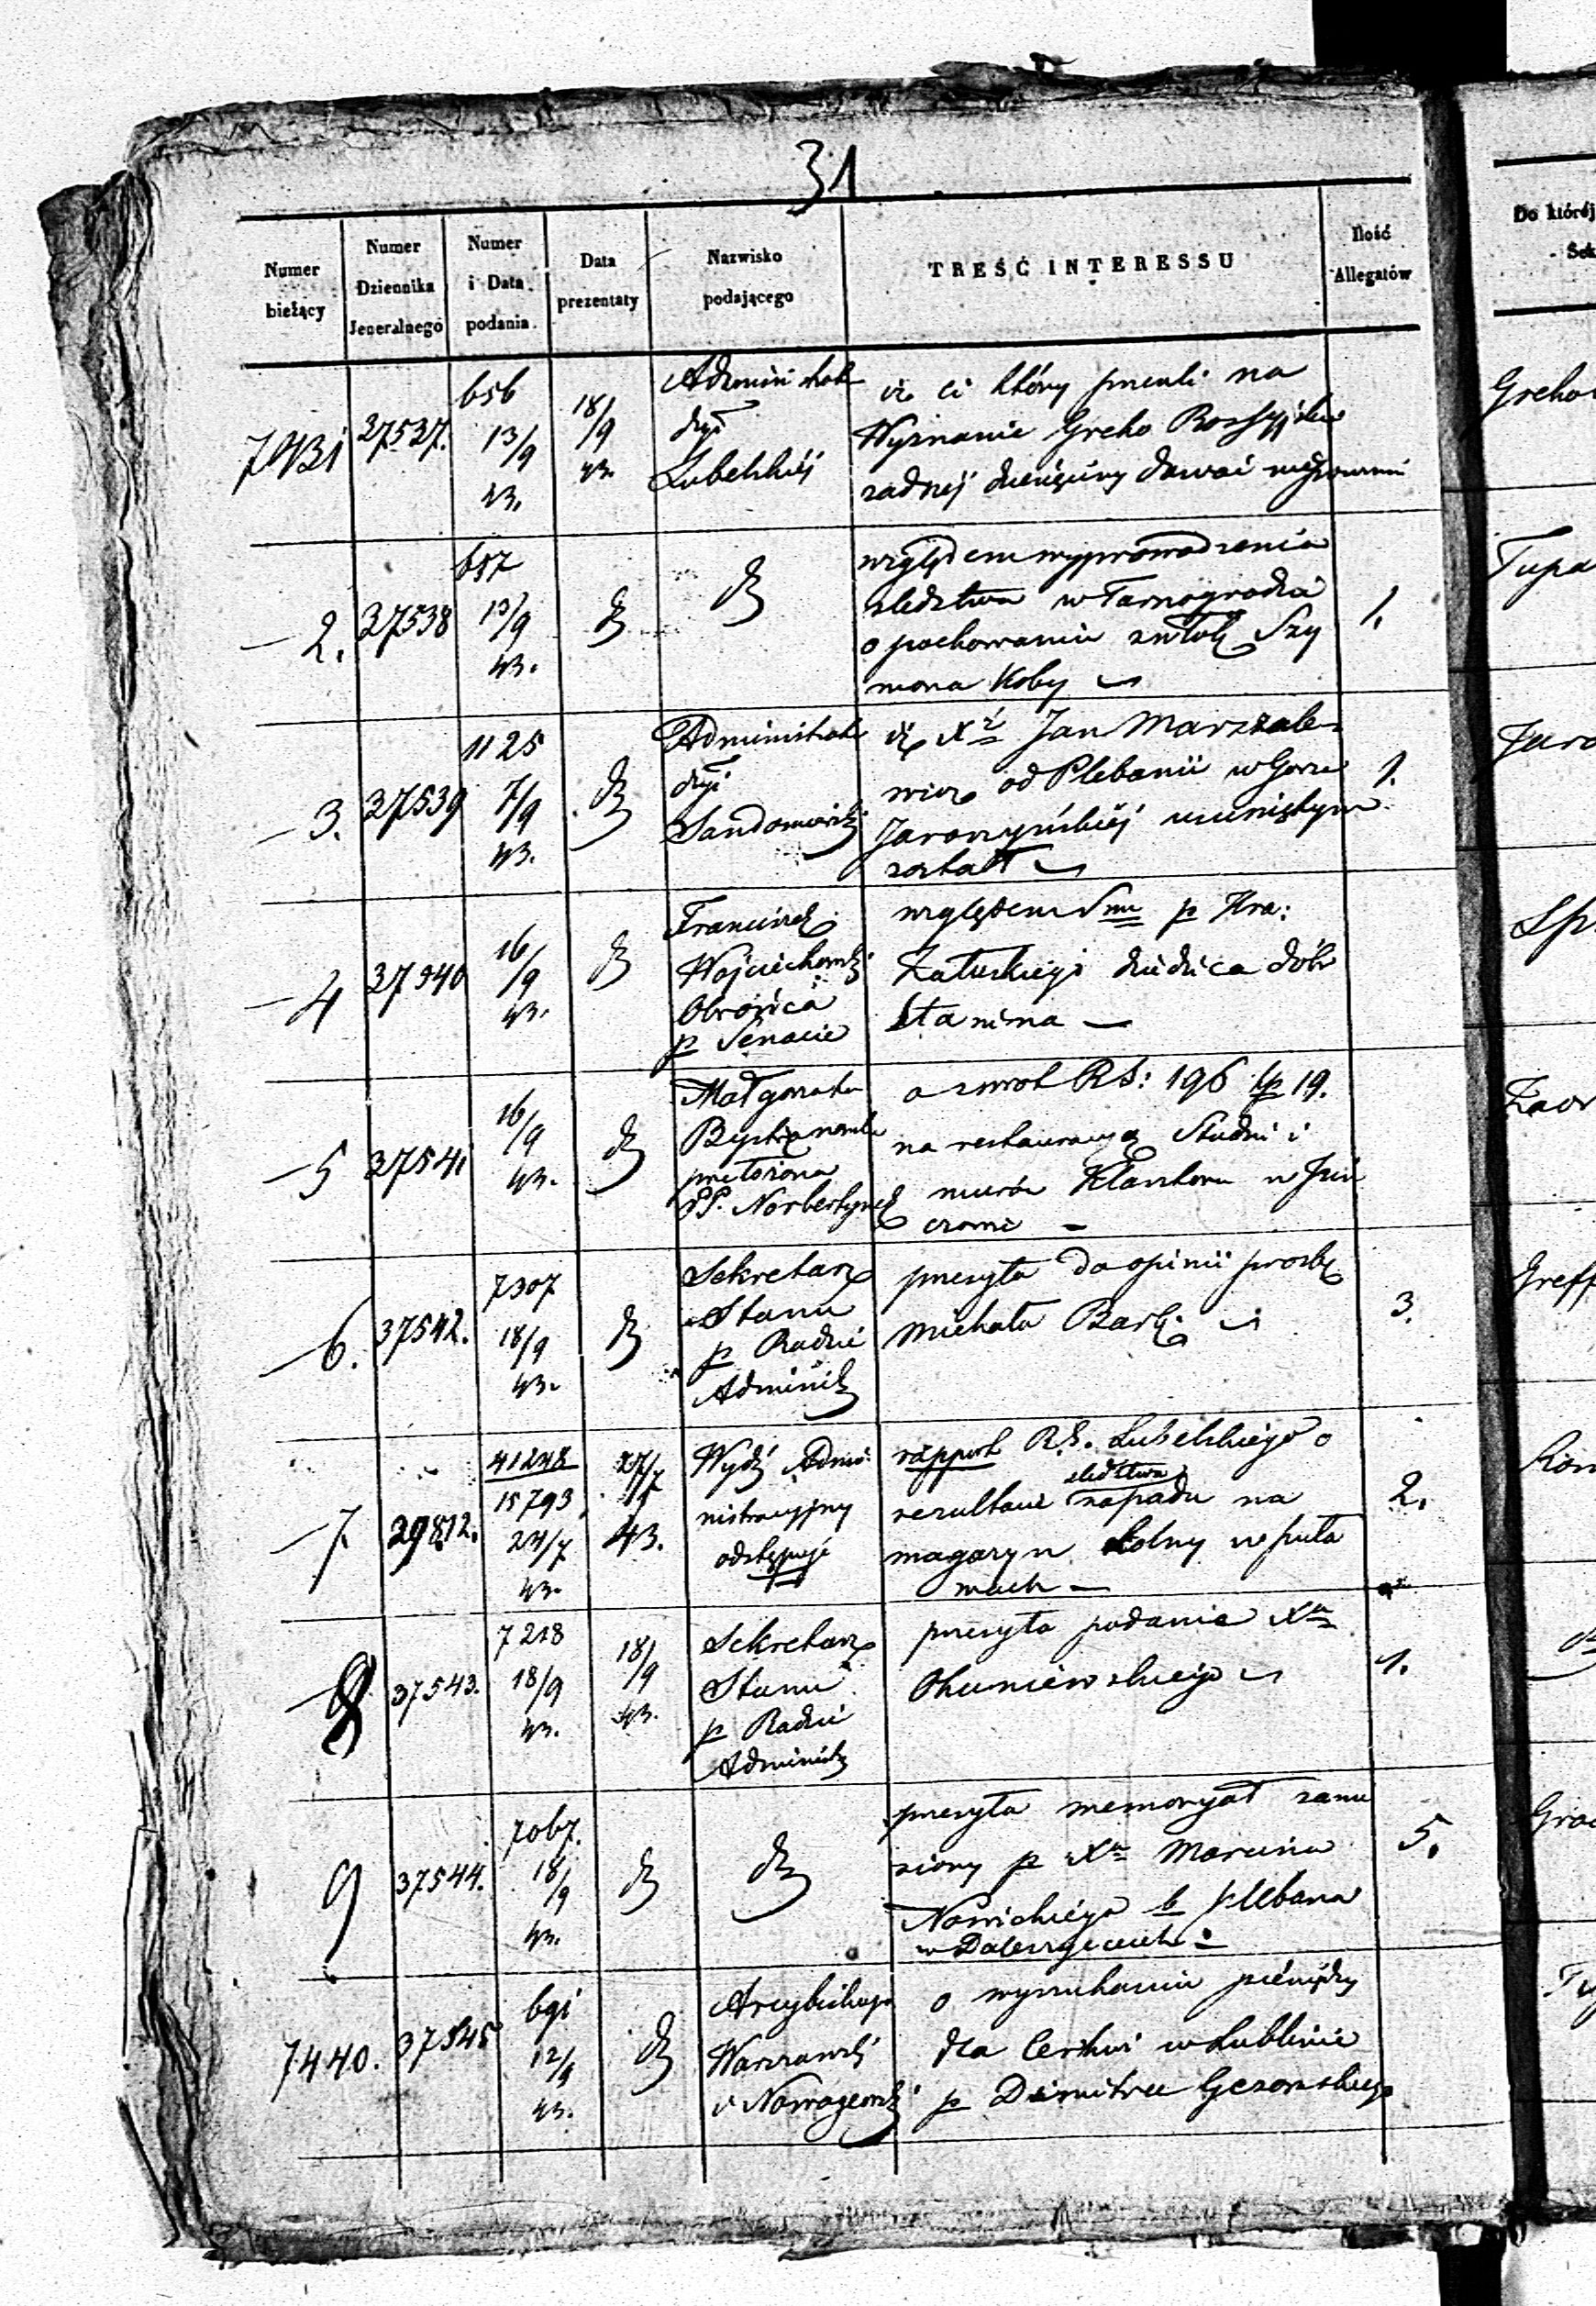 31
Numer bieżący
Numer Dziennika Jeneralnego
Numer i Data podania.
Data prezentaty
Nazwisko podającego
TREŚĆ INTERESSU
Ilość Allegatów
Do której
Sek
7431 37537. 656 13/9 43. 18/9 43.
Administrat
dyi
Lubelskiej
iż ci którzy przeszli na
Wyznanie Greko Rossyjskie
żadnej dziesięciny dawać
Greko
2. 37538 657 13/9 43. dto dto
względem wyprowadzenia
śledztwa w Tarnogrodzie
o pochowaniu zwłok Szy
mona Koby
1.
3. 37539 1125 7/9 43. dto
Administrat
dyi
Sandomirski
iż Xdz Jan Marszale-
wicz od Plebanii w Gorze
Jaroszyńskiej usuniętym
został
1.
Jaro
4 37540 16/9 43. dto
Franciszek
Wojciechowski
Obrońca
p Senacie
względem p Hra:
Załuskiego dziedzica dóbr
5 37541 16/9 43. dto
Małgorzata
przełożona
PP. Norbertynek
o zwrot RS: 196 kp 19.
na restauracyą Studni i
murów Klasztoru w Piń
czowie
6. 37542. 7307 18/9 43. dto
Sekretarz
Stanu
p Radzie
Administr
przesyła do opinii prosbę
Michała
3.
Greff
7. 29812. 41248 15793 24/7 43. 27/7 43.
Wydz Admi
nistracyjny
odstępuje
rapport R.G. Lubelskiego o
rezultacie śledztwa napadu na
magazyn Solny w Puła
wach
2.
8 37543. 7218 18/9 43. 18/9 43.
Sekretarz
Stanu
p Radzie
Administr
przesyła podanie Xa
Okuniewskiego
1.
9 37544. 7067. 18/9 43. dto dto
przesyła memoryał zanie
siony p Xa Marcina
Nowickiego b plebana
w Daleszycach
5.
7440. 37545 691 12/9 43. dto
Arcybiskup
Warszawski
i Nowogeor
o wyszukaniu pieniędzy
dla Cerkwi w Lublinie
p Dimitra